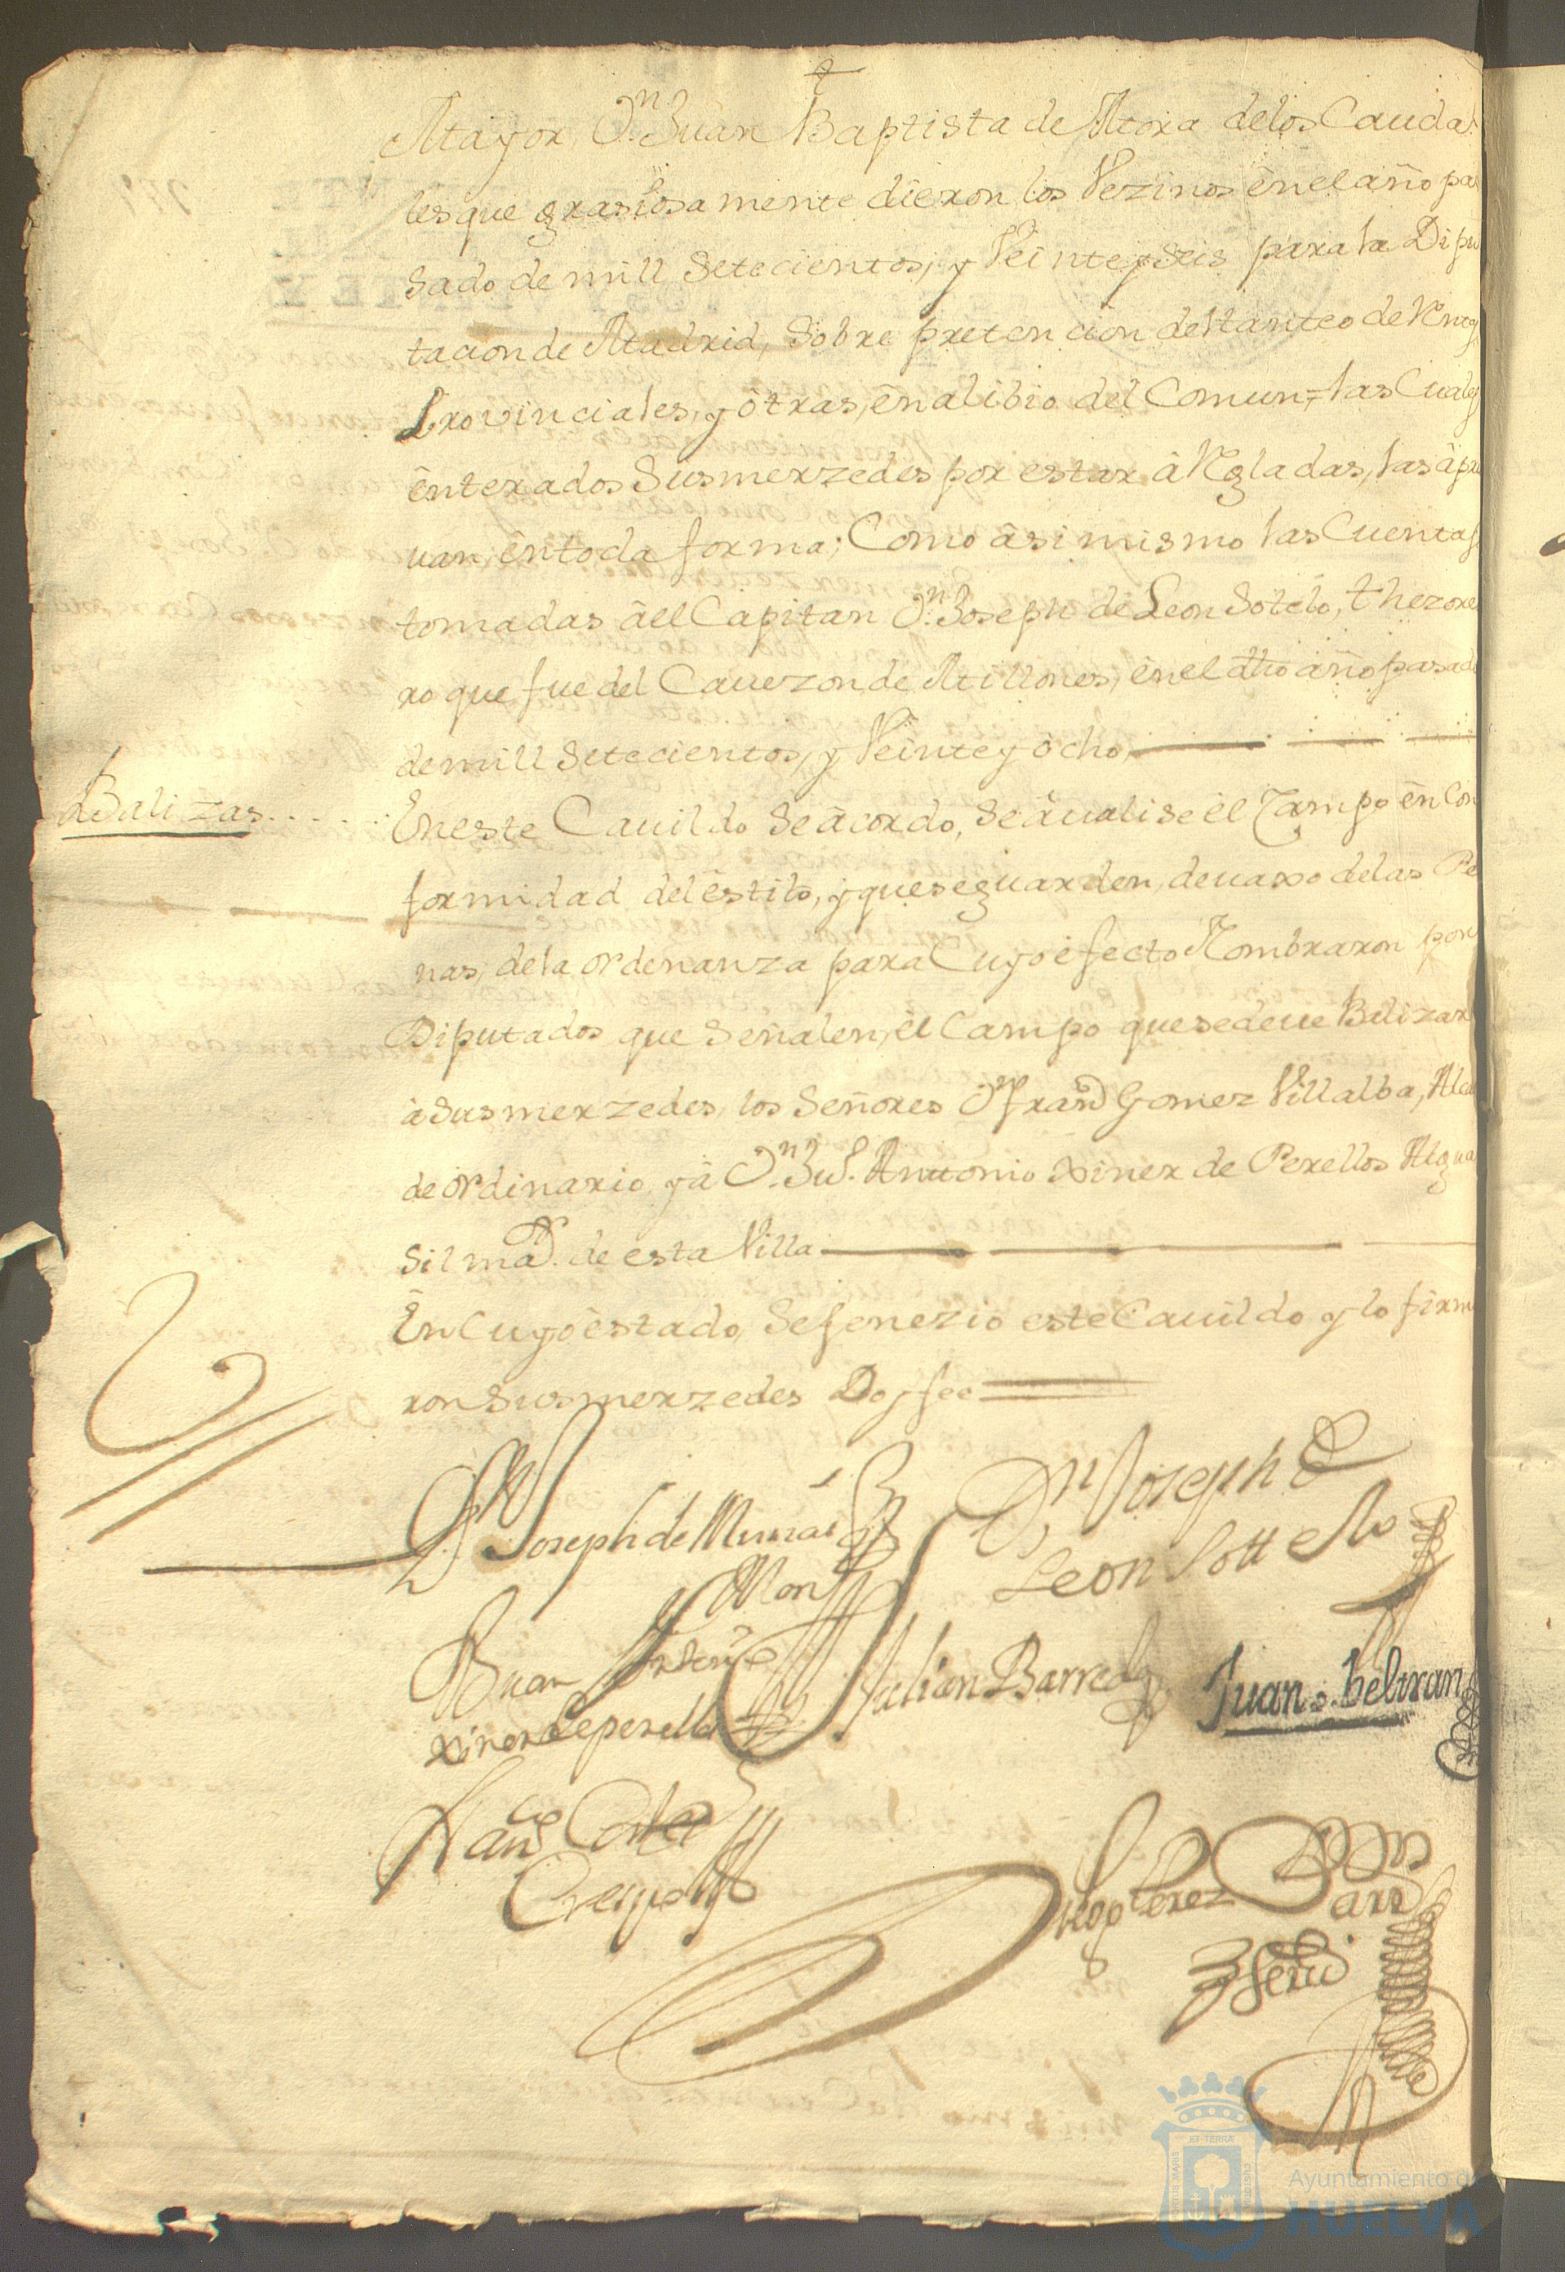 Mayor, Dn. Juan Baptista de Mora de los Cauda
les que grasiosamente dieron los Vezinos ên el año pa
sado de mill Setecientos, y Veinte y Seis para la Dipu
tacion de Madrid, Sobre pretencion de tanteo de Rentas
Provinciales, y ôtras, ên alibio del Comun, = las Cuales
ênterados Sus merzedes por estar â Regladas, las âpru
uan, ên toda forma; Como âsi mismo las Cuentas
tomadas âel Capitan Dn. Joseph de Leon Sotelo, thezore
ro que fue del Cauezon de Millones, ên el dho año pasado
de mill Setecientos, y Veinte y ôcho,
Balizas......
En este Cauildo Se âcordo, Se âualise êl Campo ên Con
formidad del êstilo, y que se guarden, deuaxo de las Pe
nas, de la ordenanza para Cuyo êfecto Nombraron por
Diputados que Señalen, êl Campo que se deue Balizar
â Sus merzedes, los Señores Dn. Franco Gomez Villalba, Alcal
de ordinario, y â Dn. Ju. Antonio Xinez de Perellos Algua
sil mar. de esta Villa
En Cuyo êstado, Se fenezio este Cauildo y lo firma
ron Sus merzedes Doy fee
Dn Joseph de
Dn Joseph de
Leon Sottelo
Juan Antonio
Xinez de perellos
Julian Barreda
Juan beltran
Franco Cortes
Crespo
Diego Perez
Ayuntamiento de
HUELVA